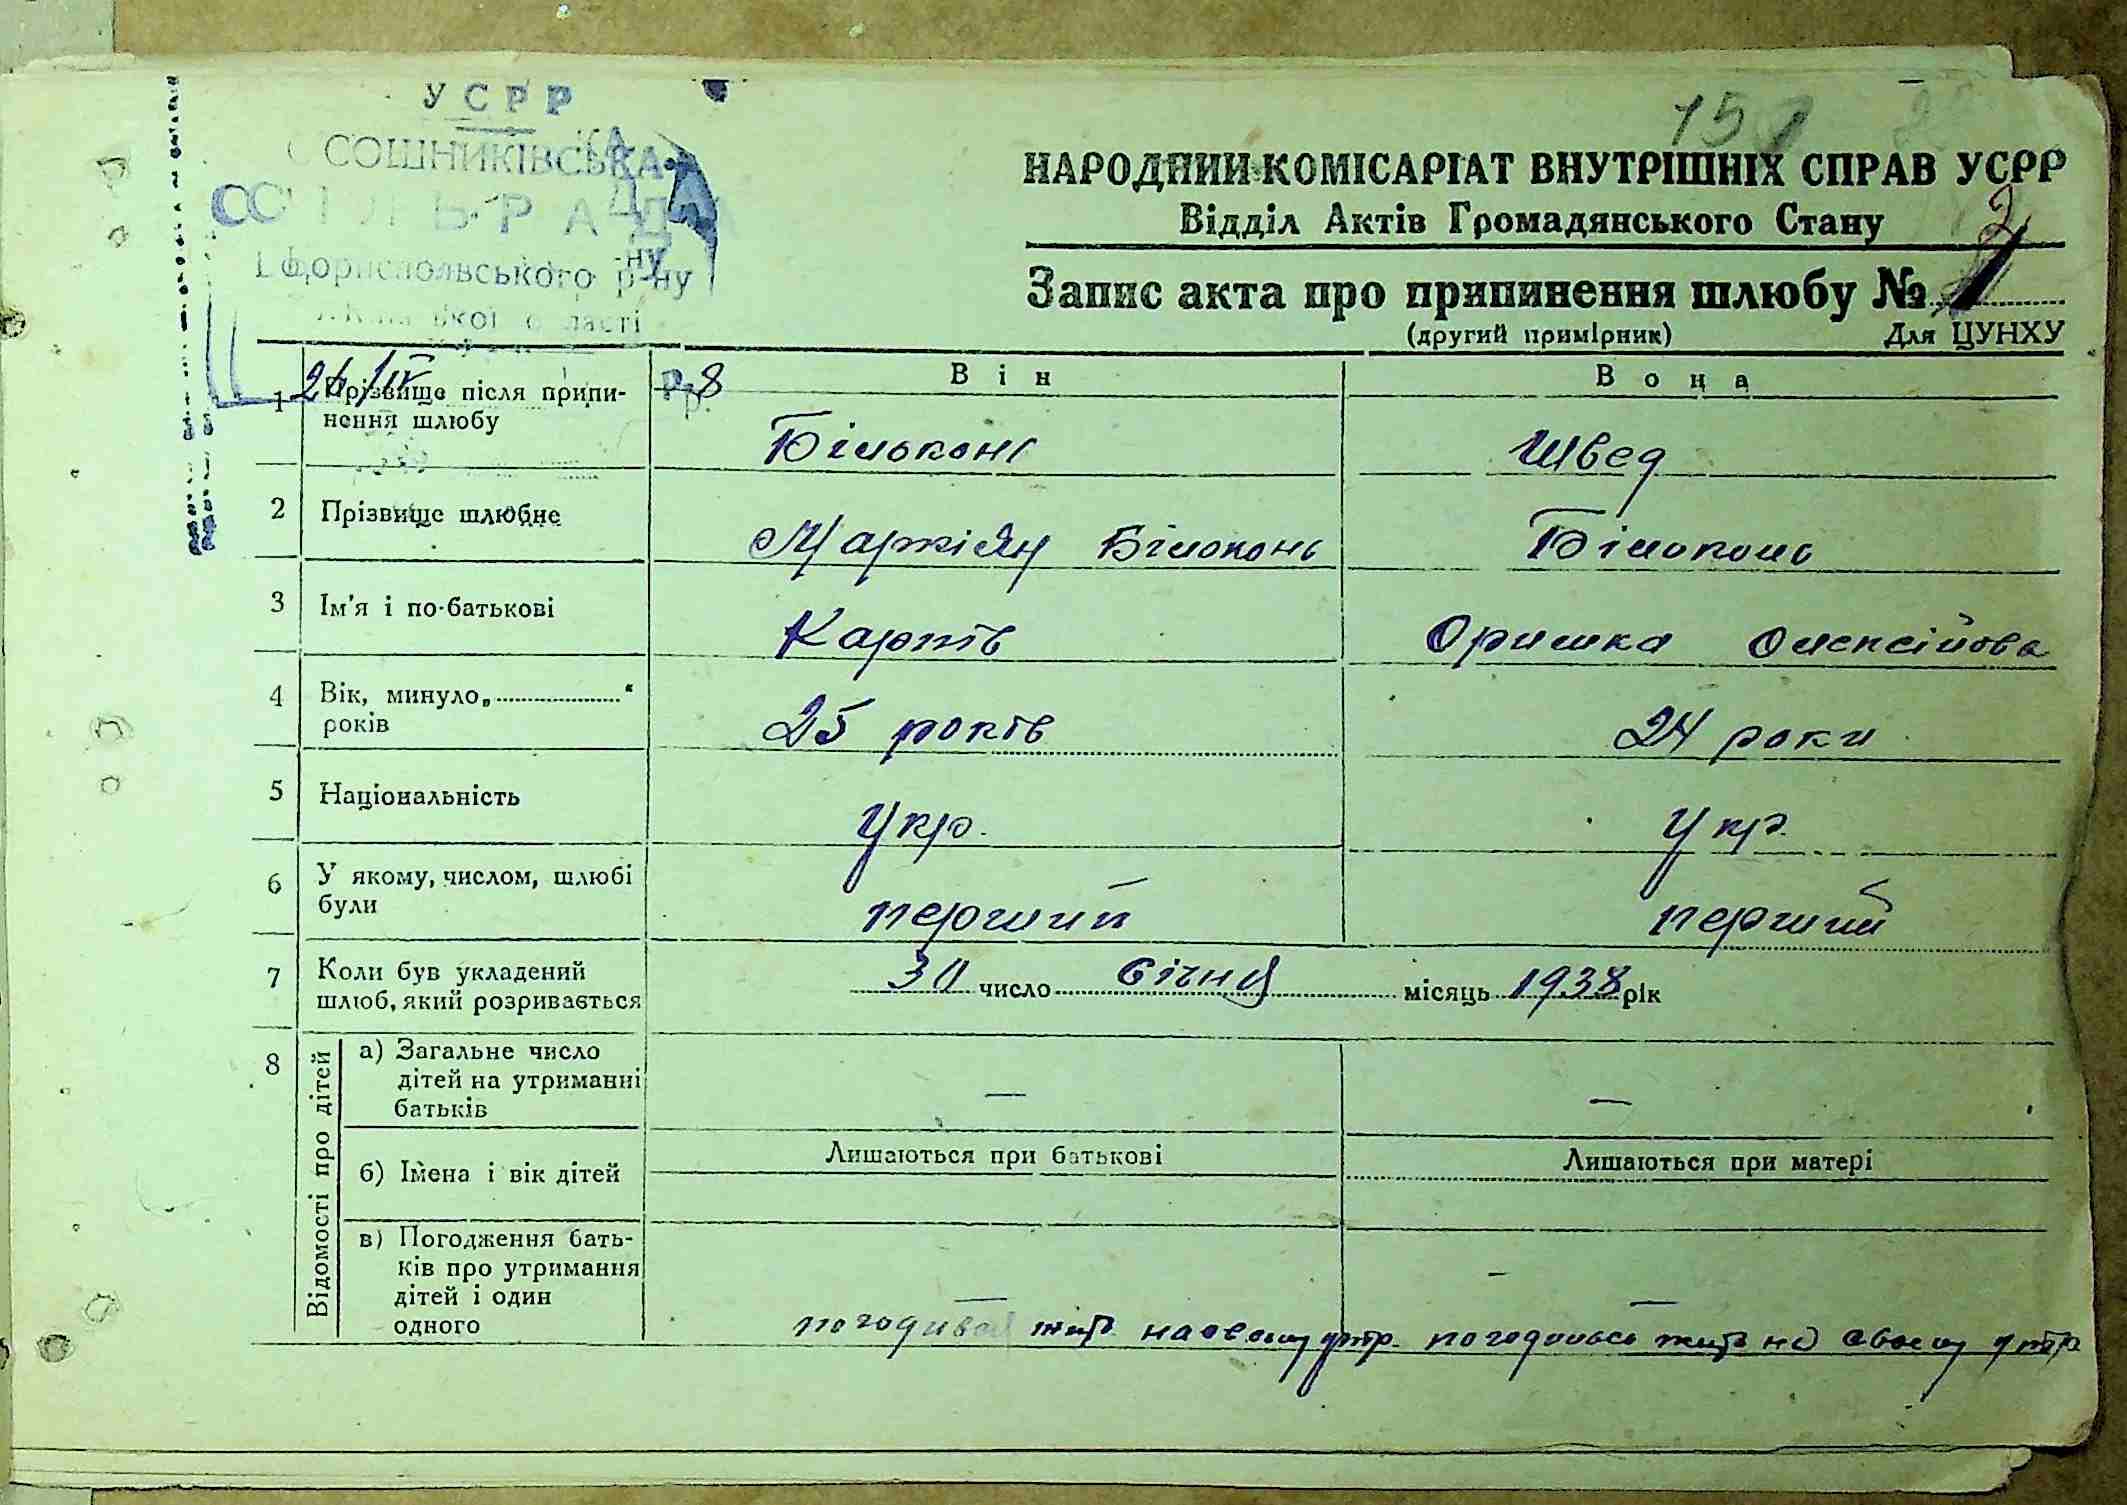 УСРР
СОШНИКІВСЬКА
СІЛЬРАДА
Бориспольського р-ну
150
НАРОДНИЙ КОМІСАРІАТ ВНУТРІШНІХ СПРАВ УСРР
Відділ Актів Громадянського Стану
Запис акта про припинення шлюбу № 2
(другий примірник) Для ЦУНХУ
26/IV 8
Він Вона
1 Прізвище після припи-
нення шлюбу Більоконь Швед
2 Прізвище шлюбне Маркіян Білоконь Білоконь
3 Ім'я і по-батькові Карпів Оришка Олексійова
4 Вік, минуло „ “
років 25 років 24 роки
5 Національність Укр. Укр.
6 У якому, числом, шлюбі
були перший перший
7 Коли був укладений
шлюб, який розривається 30 число Січня місяць 1938 рік
8 Відомості про дітей
а) Загальне число
дітей на утриманні
батьків — —
б) Імена і вік дітей Лишаються при батькові Лишаються при матері
в) Погодження бать-
ків про утримання
дітей і один
одного — —
погодився жить на своєму утр. погодилась жить на своєму утр